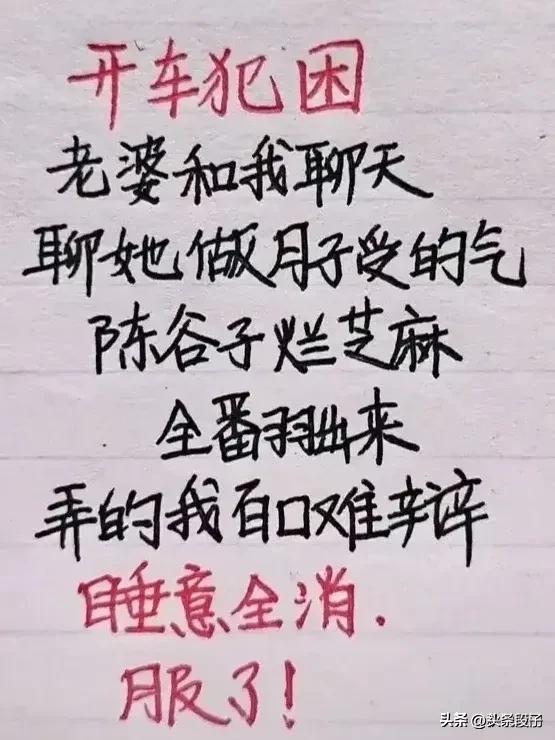 开车犯困
老婆和我聊天
聊她做月子受的气
陈谷子烂芝麻
全翻出来
弄的我百口难辩
睡意全消.
服了!
头条 @头条段子